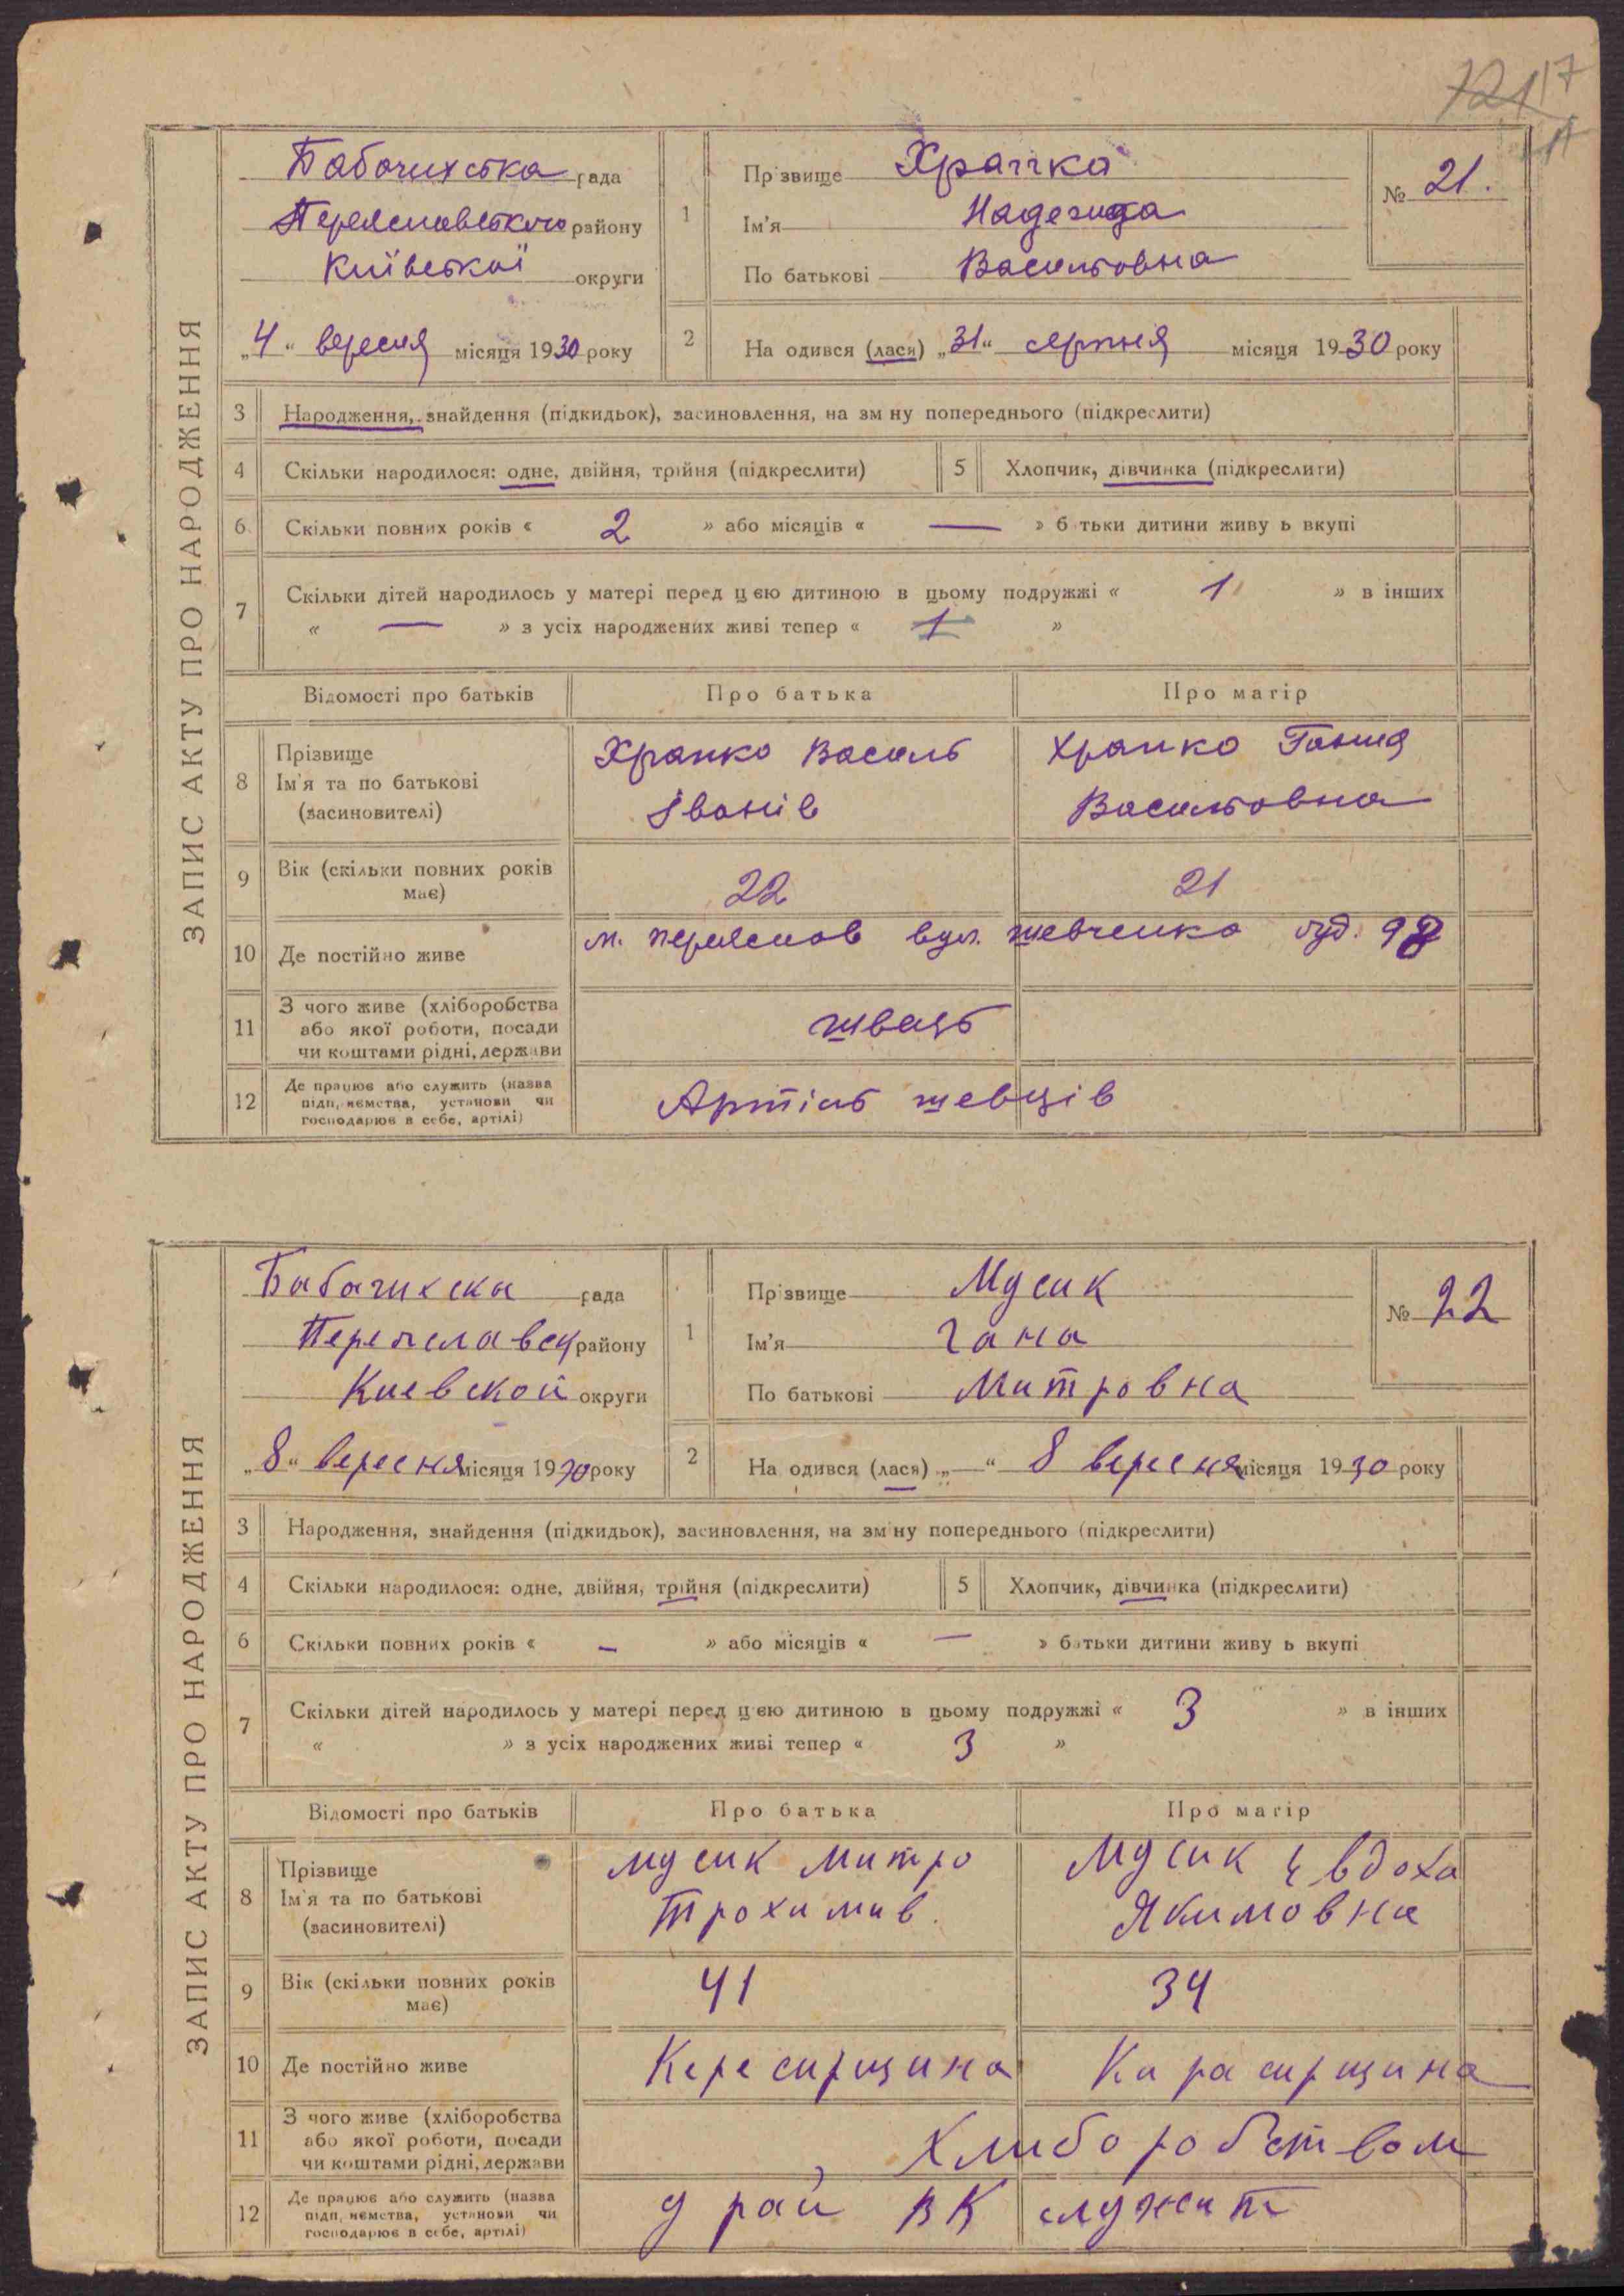 17
ЗАПИС АКТУ ПРО НАРОДЖЕННЯ
Бабачихська рада
Переяславського району
Київської округи
„4“ вересня місяця 1930 року
1
Прізвище Храпко
Ім'я Надежда
По батькові Васильовна
№ 21.
2
На одився (лася) „31“ серпня місяця 1930 року
3 Народження, знайдення (підкидьок), засиновлення, на зм ну попереднього (підкреслити)
4 Скільки народилося: одне, двійня, трійня (підкреслити) 5 Хлопчик, дівчинка (підкреслити)
6 Скільки повних років « 2 » або місяців « — » б тьки дитини живу ь вкупі
7 Скільки дітей народилось у матері перед цією дитиною в цьому подружжі « 1 » в інших
« — » з усіх народжених живі тепер « 1 »
Відомості про батьків Про батька Про матір
8 Прізвище
Ім'я та по батькові
(засиновителі)
Храпко Василь
Іванів
Храпко Ганна
Васильовна
9 Вік (скільки повних років
має)
22 21
10 Де постійно живе м. Переяслов вул. Шевченко буд. 98
11 З чого живе (хліборобства
або якої роботи, посади
чи коштами рідні, держави
швець
12 Де працює або служить (назва
підп, иємства, установи чи
господарює в себе, артілі)
Артіль шевців
ЗАПИС АКТУ ПРО НАРОДЖЕННЯ
Бабачихска рада
Переяславск району
Киевской округи
„8“ вересня місяця 1930 року
1
Прізвище Мусик
Ім'я Гана
По батькові Митровна
№ 22
2
На одився (лася) „—“ 8 вересня місяця 1930 року
3 Народження, знайдення (підкидьок), засиновлення, на зм ну попереднього (підкреслити)
4 Скільки народилося: одне, двійня, трійня (підкреслити) 5 Хлопчик, дівчинка (підкреслити)
6 Скільки повних років « – » або місяців « — » батьки дитини живу ь вкупі
7 Скільки дітей народилось у матері перед цією дитиною в цьому подружжі « 3 » в інших
« » з усіх народжених живі тепер « 3 »
Відомості про батьків Про батька Про матір
8 Прізвище
Ім'я та по батькові
(засиновителі)
Мусик Митро
Трохимив
Мусик Євдоха
Якимовна
9 Вік (скільки повних років
має)
41 34
10 Де постійно живе Кересирщина Карасирщина
11 З чого живе (хліборобства
або якої роботи, посади
чи коштами рідні, держави
Хлиборобством
12 Де працює або служить (назва
підп, иємства, установи чи
господарює в себе, артілі)
у рай ВК служит